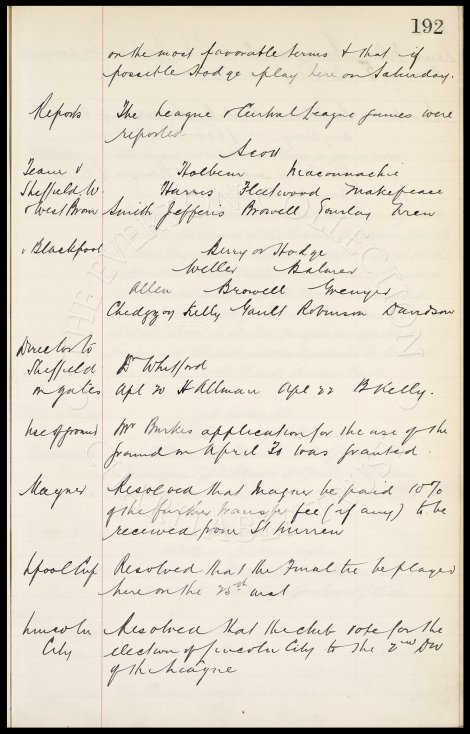 192
on the most favorable terms & that if
possible Hodge play here on Saturday.
Reports The League & Central League games were
reported
Scott
Team v Holbem Maconnachie
Sheffield W. Harris Fleetwood Makepeace
& West Brom Smith Jefferis Browell Gourlay Uren
v Blackpool Berry or Hodge
Weller Balmer
Allen Browell Grenyer
Chedgzoy Kelly Gault Robinson Davidson
Director to
Sheffield Dr Whitford
on gates Apl 20 H Allman Apl 22 B Kelly.
Use of ground Mr Burkes application for the use of the
ground on April 30 was granted.
Magner Resolved that Magner be paid 10%
of the further transfer fee (if any) to be
received from St Mirren
Lpool Cup Resolved that the Final tie be played
here on the 25th inst
Lincoln Resolved that the club vote for the
City election of Lincoln City to the 2nd Div
of the League
THE EVERTON COLLECTION